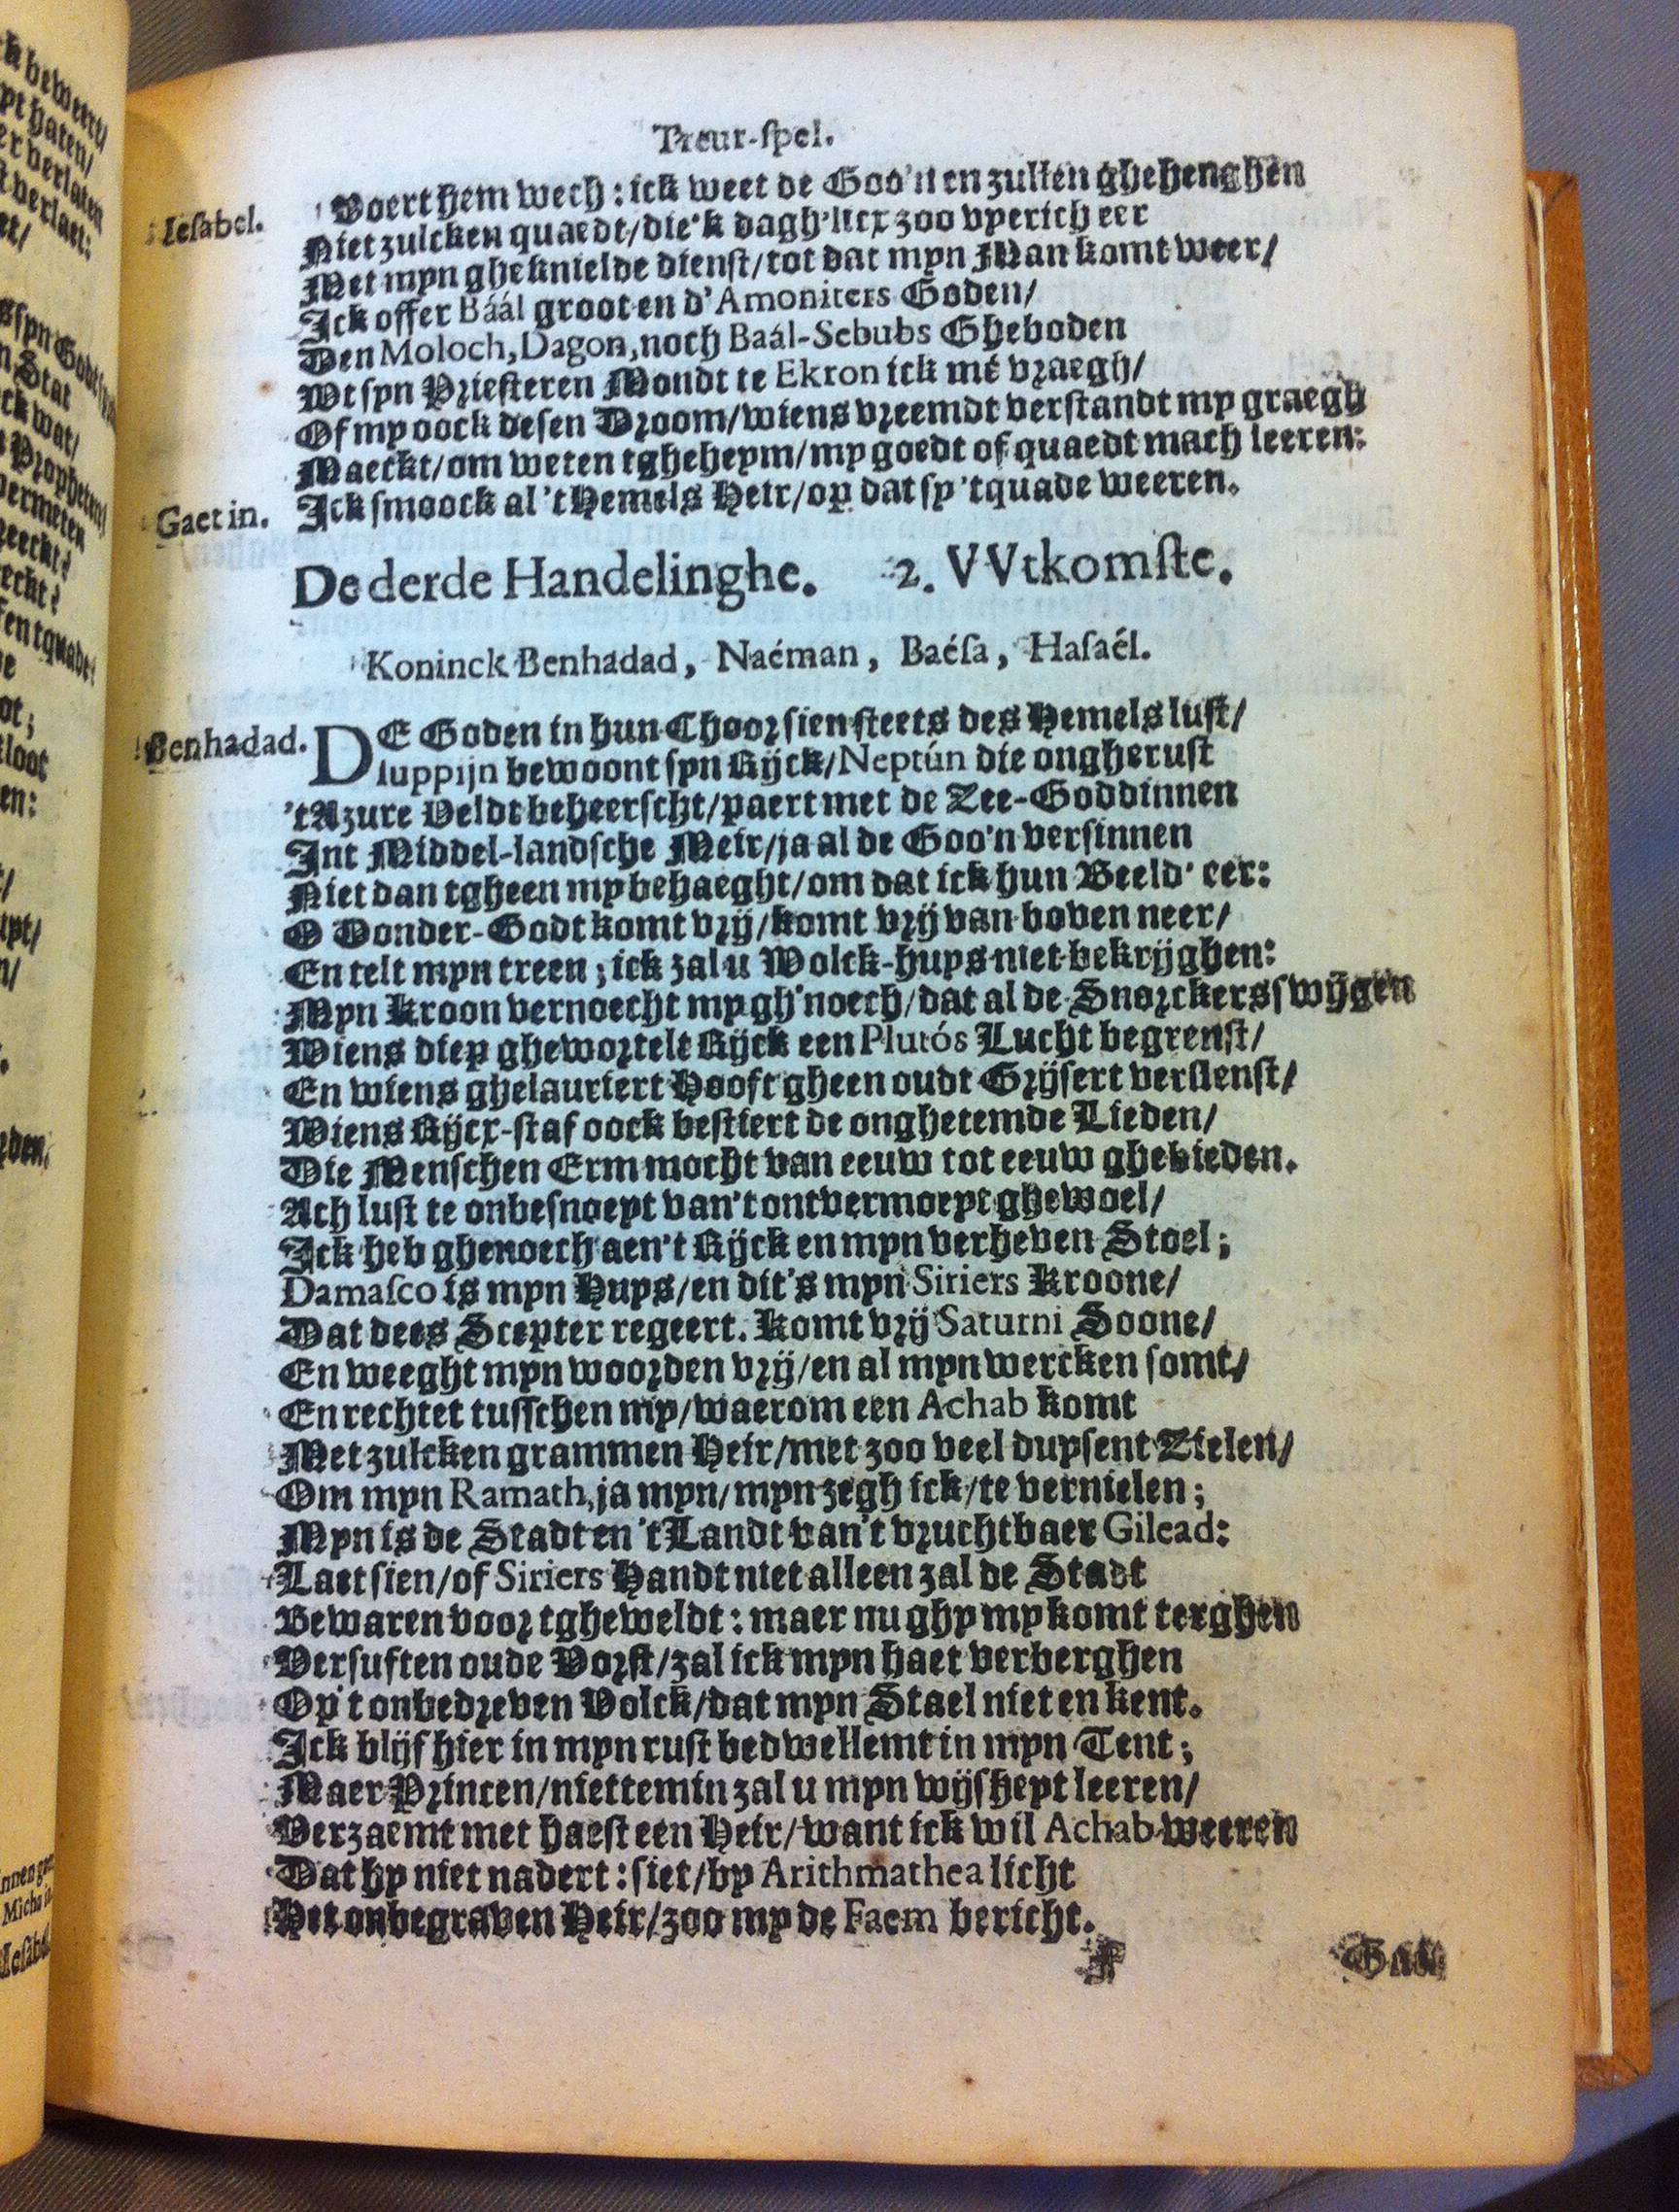 Treur-spel.
Iesabel. Voert hem wech: ick weet de Goo'n en zullen ghehenghen
Niet zulcken quaedt/die'k dagh'licx zoo vyerich eer
Met myn gheknielde dienst/tot dat myn Man komt weer/
Ick offer Báál groot en d'Amoniters Goden/
Den Moloch, Dagon, noch Baál-Sebubs Gheboden
Wt syn Priesteren Mondt te Ekron ick mé vraegh/
Of my oock desen Droom/wiens vreemdt verstandt my graegh
Maeckt/om weten tgheheym/my goedt of quaedt mach leeren:
Gaet in. Ick smoock al 't Hemels Heir/op dat sy 'tquade weeren.
De derde Handelinghe. 2. VVtkomste.
Koninck Benhadad, Naéman, Baésa, Hasaél.
Benhadad. DE Goden in hun Choor sien steets des Hemels lust/
Iuppijn bewoont syn Rijck/Neptún die ongherust
'tAzure Veldt beheerscht/paert met de Zee-Goddinnen
Int Middel-landsche Meir/ja al de Goo'n versinnen
Niet dan tgheen my behaeght/om dat ick hun Beeld' eer:
O Donder-Godt komt vrij/komt vrij van boven neer/
En telt myn treen; ick zal u Wolck-huys niet bekrijghen:
Myn Kroon vernoecht my gh'noech/dat al de Snorckers swijgen
Wiens diep ghewortelt Rijck een Plutós Lucht begrenst/
En wiens ghelauriert Hooft gheen oudt Grijsert verslenst/
Wiens Rijcx-staf oock bestiert de onghetemde Lieden/
Die Menschen Erm mocht van eeuw tot eeuw ghebieden.
Ach lust te onbesnoeyt van't ontvermoeyt ghewoel/
Ick heb ghenoech aen't Rijck en myn verheven Stoel;
Damasco is myn Huys/en dit's myn Siriers Kroone/
Dat dees Scepter regeert. Komt vrij Saturni Soone/
En weeght myn woorden vrij/en al myn wercken somt/
En rechtet tusschen my/waerom een Achab komt
Met zulcken grammen Heir/met zoo veel duysent Zielen/
Om myn Ramath, ja myn/myn zegh ick/te vernielen;
Myn is de Stadt en 't Landt van't vruchtbaer Gilead:
Laet sien/of Siriers Handt niet alleen zal de Stadt
Bewaren voor tgheweldt: maer nu ghy my komt terghen
Versuften oude Vorst/zal ick myn haet verberghen
Op't onbedreven Volck/dat myn Stael niet en kent.
Ick blijf hier in myn rust bedwellemt in myn Tent;
Maer Princen/niettemin zal u myn wijsheyt leeren/
Verzaemt met haest een Heir/want ick wil Achab weeren
Dat hy niet nadert: siet/by Arithmathea licht
Het onbegraven Heir/zoo my de Faem bericht.
F